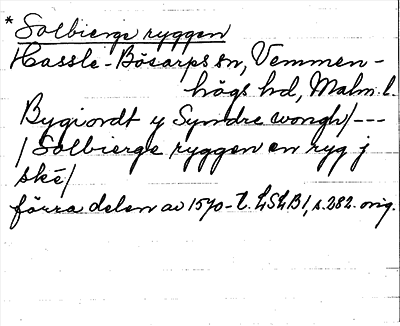 * Solbierge ryggen
Hassle-Bösarps sn, Vemmen-
högs hd, Malm. l.
Bygiordt y Syndre wongh/---
/ Solbierge ryggen en ryg j
ské/
förra delen av 1570-t. LSLB1, s. 282. orig.